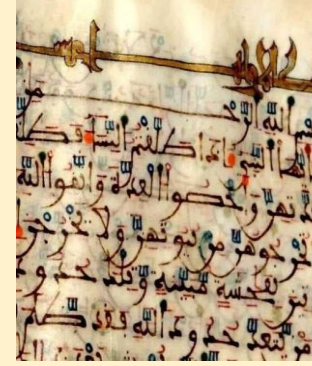 سم الله الرحمن
أيها النبي إذا طلقتم النساء فطلـ
دتهن وأحصوا العدة واتقوا الله
تخرجوهن من بيوتهن ولا يخرجـ
تين بفحشة مبينة وتلك حدود
من يتعد حدود الله فقد ظلم